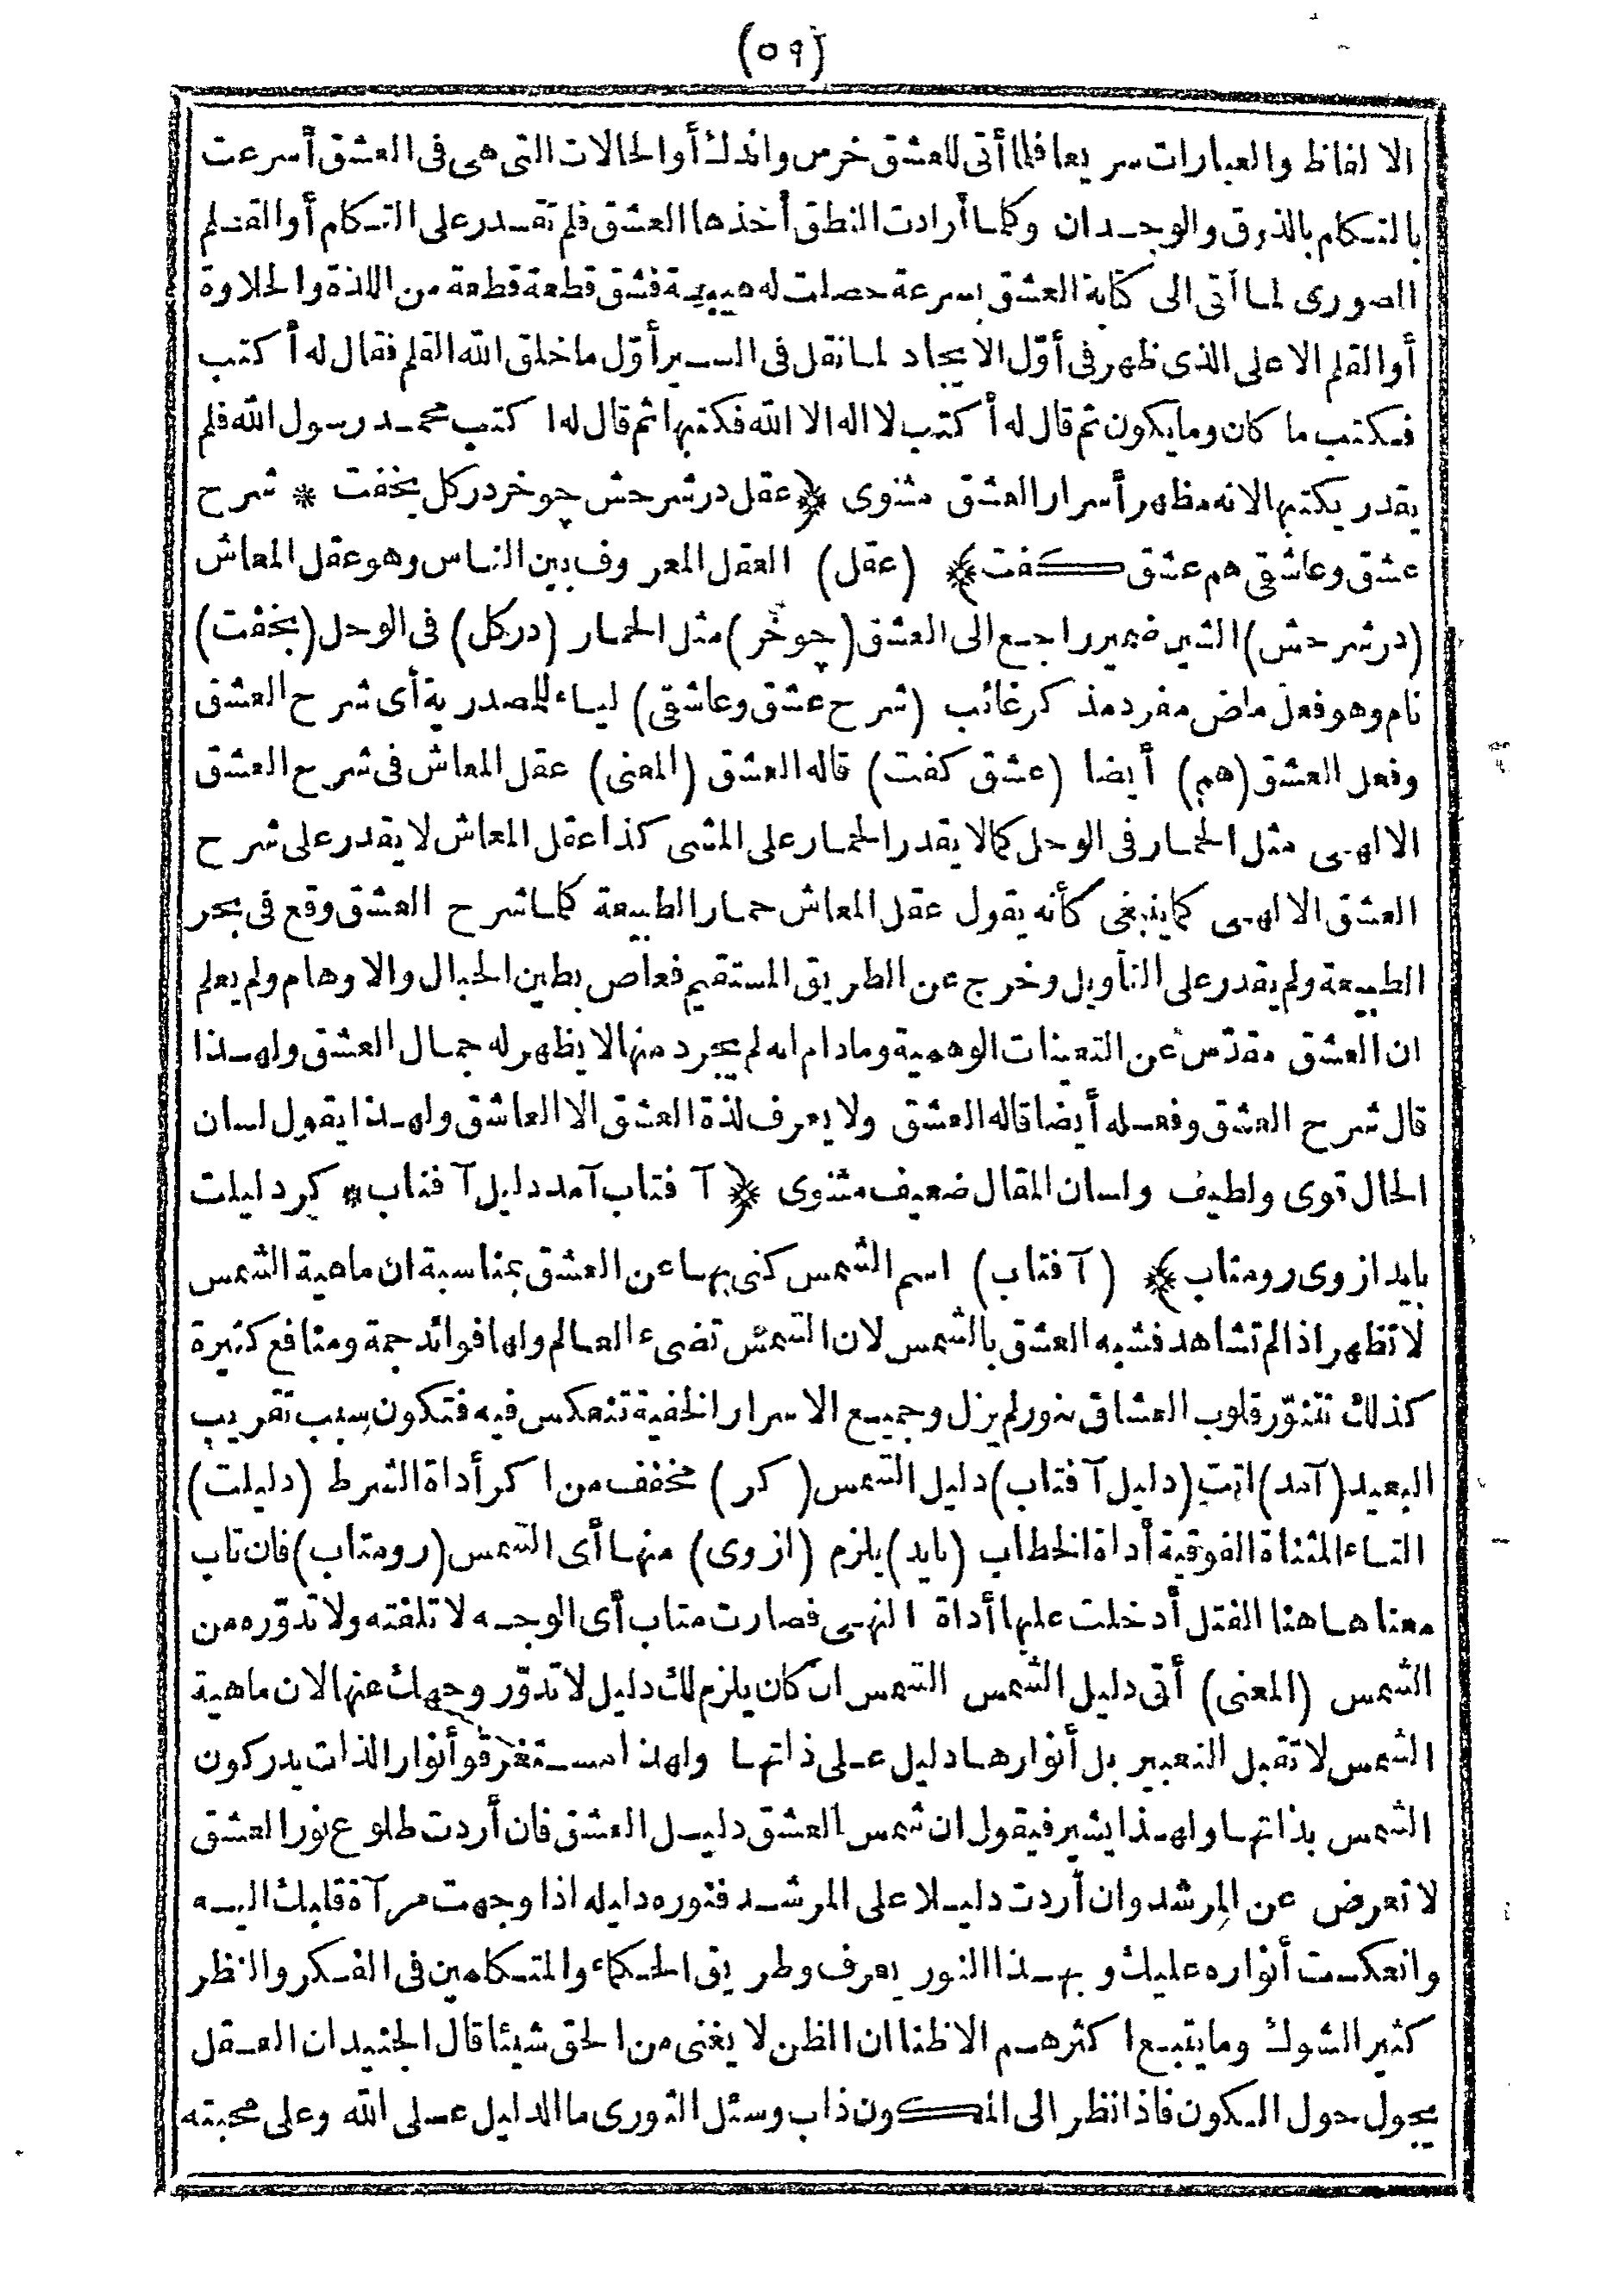 (٥٩)
الالفاظ والعبارات سريعا فلما أتى للعشق خرس واندك أو الحالات التى هى فى العشق أسرعت
بالتكلم بالذوق والوجدان وكلما أرادت النطق أخذها العشق فلم تقدر على التكلم أو القلم
الصورى لما أتى الى كتابة العشق بسرعة حصلت له هيبة فشق قطعة قطعة من اللذة والحلاوة
أو القلم الاعلى الذى ظهر فى أوّل الايجاد لما نقل فى السير أوّل ما خلق الله القلم فقال له أكتب
فكتب ما كان وما يكون ثم قال له أكتب لا اله الا الله فكتبها ثم قال له اكتب محمد رسول الله فلم
يقدر يكتبها لانه مظهر أسرار العشق مثنوى ﴿عقل در شرحش چو خر در كل بخفت * شرح
عشق وعاشقى هم عشق كفت﴾ (عقل) العقل المعروف بين الناس وهو عقل المعاش
(در شرحش) الشين ضمير راجع الى العشق (چو خر) مثل الحمار (در كل) فى الوحل (بخفت)
نام وهو فعل ماض مفرد مذكر غائب (شرح عشق وعاشقى) لياء للمصدرية أى شرح العشق
وفعل العشق (هم) أيضا (عشق كفت) قاله العشق (المعنى) عقل المعاش فى شرح العشق
الالهى مثل الحمار فى الوحل كما لا يقدر الحمار على المشى كذا عقل المعاش لا يقدر على شرح
العشق الالهى كما ينبغى كأنه يقول عقل المعاش حمار الطبيعة كلما شرح العشق وقع فى بحر
الطبيعة ولم يقدر على التأويل وخرج عن الطريق المستقيم فغاص بطين الخيال والاوهام ولم يعلم
ان العشق مقدّس عن التعينات الوهمية وما دام انه لم يجرد منها لا يظهر له جمال العشق ولهذا
قال شرح العشق وفعله أيضا قاله العشق ولا يعرف لذة العشق الا العاشق ولهذا يقول لسان
الحال قوى ولطيف ولسان المقال ضعيف مثنوى ﴿آفتاب آمد دليل آفتاب * كر دليلت
بايد از وى رومتاب﴾ (آفتاب) اسم الشمس كنى بها عن العشق بمناسبة ان ماهية الشمس
لا تظهر اذا لم تشاهد فشبه العشق بالشمس لان الشمس تضىء العالم ولها فوائد جمة ومنافع كثيرة
كذلك تتنوّر قلوب العشاق بنور لم يزل وجميع الاسرار الخفية تنعكس فيه فتكون سبب تقريب
البعيد (آمد) اتت (دليل آفتاب) دليل الشمس (كر) مخفف من اكر أداة الشرط (دليلت)
التاء المثناة الفوقية أداة الخطاب (بايد) يلزم (از وى) منها أى الشمس (رومتاب) فان تاب
معناها هنا الفتل أدخلت عليها أداة النهى فصارت متاب أى الوجه لا تلفته ولا تدوّره من
الشمس (المعنى) أتى دليل الشمس الشمس ان كان يلزم لك دليل لا تدوّر وجهك عنها لان ماهية
الشمس لا تقبل التعبير بل أنوارها دليل على ذاتها ولهذا مستغرقو أنوار الذات يدركون
الشمس بذاتها ولهذا يشير فيقول ان شمس العشق دليل العشق فان أردت طلوع نور العشق
لا تعرض عن المرشد وان أردت دليلا على المرشد فنوره دليله اذا وجهت مرآة قلبك اليه
وانعكست أنواره عليك وبهذا النور يعرف وطريق الحكماء والمتكلمين فى الفكر والنظر
كثير الشوك وما يتبع اكثرهم الا ظنا ان الظن لا يغنى من الحق شيئا قال الجنيد ان العقل
يجول حول الكون فاذا نظر الى المكون ذاب وسئل النورى ما الدليل على الله وعلى محبته